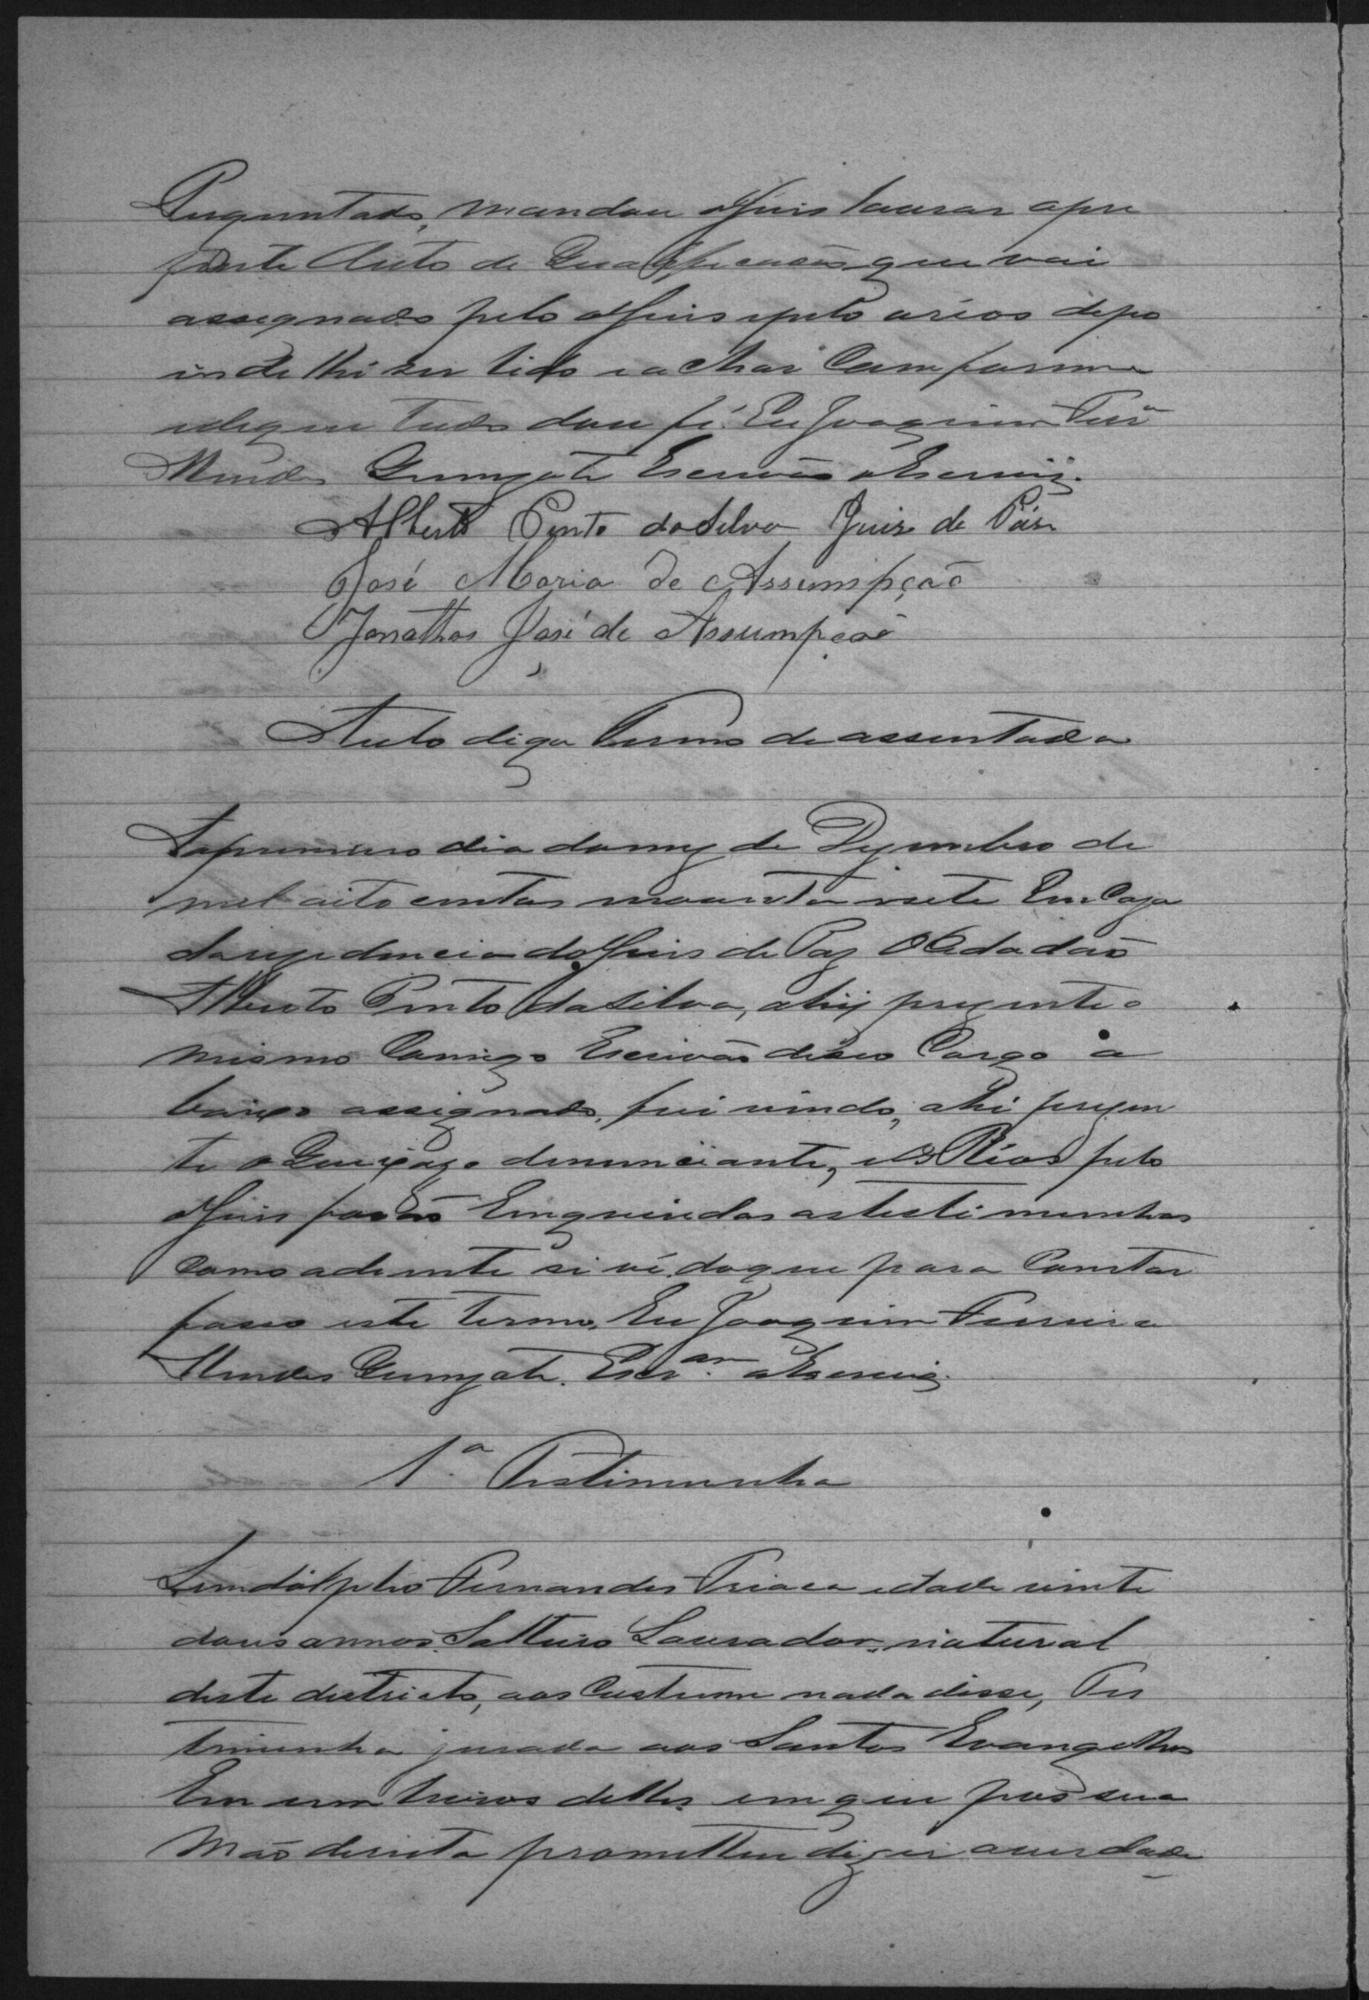 Preguntado, mandou o Juis lavrar apre
zente Auto de Qualificacão que vai
assegnado pelo Juis epelo aréos depo
is de lhi ser lido e achar Comforme
edeque tudo dou fé. Eu Joaquim Ferr.ª
Mendes Escrivão o Escrivi.
Alberto Pinto da Silva Juis de Páss
José Maria de Assumpção
Jonathas José de Assumpção
Auto digo Termo de assentada
Ao primeiro dia do mez de Dezembro de
mil oito centos noventa esete Em Caza
da rezidencia do Juis de Paz O Cidadão
Alberto Pinto da Silva, ahij prezente o
mismo Comigo Escrivão diseo Cargo a
baixo assignado, fui vindo, ahi prezen
te o Queixozo denunciante, e os Réos pelo
Juis forão Emqueridas as testimunhas
Como adiente si vê, doque para Constar
passo este termo, Eu Joaquim Ferreira
Mendes Escr.am o Escrevi.
1.ª Testimunha
Lindólpho Fernandes edade vinte
dous annos, Solteiro Lavrador, natural
deste destricto, aos Custume nada disse, Tes
timunha jurada aos Santos Evangelhos
Em um livros delles, em que pos sua
Mão direita prometteu dizer averdade